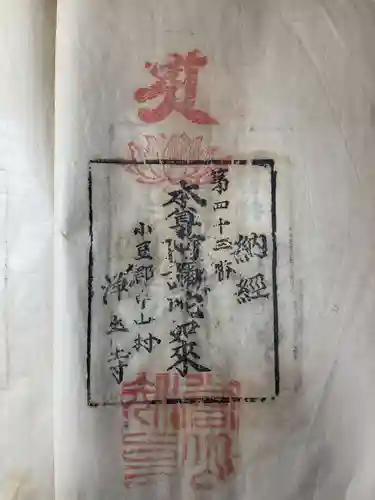 納経
第四十三番
本尊阿彌陀如來
小豆郡中山村
浄土寺